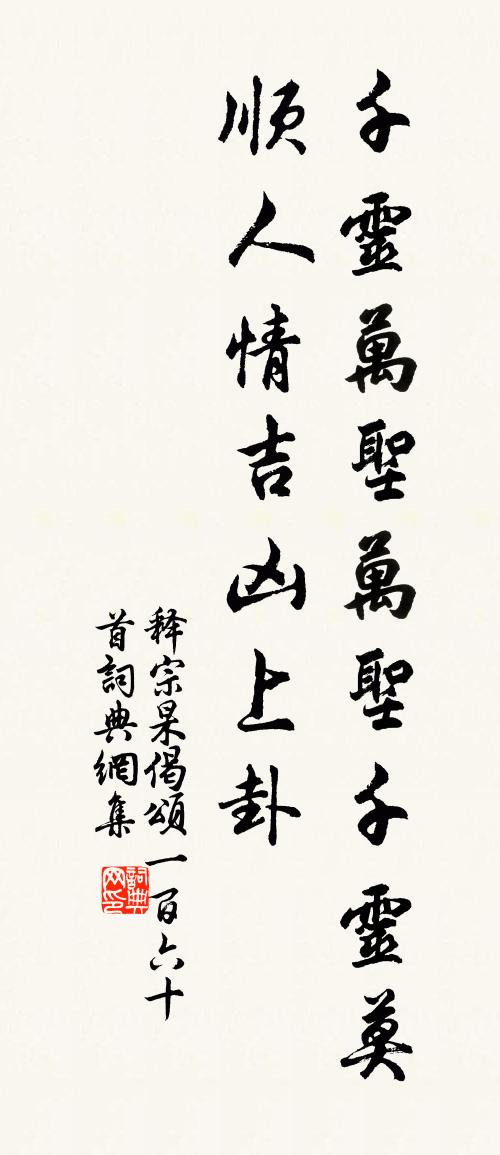 千靈萬聖萬聖千靈莫
順人情吉凶上卦
释宗杲偈頌一百六十
首詞典網集
詞典
网印